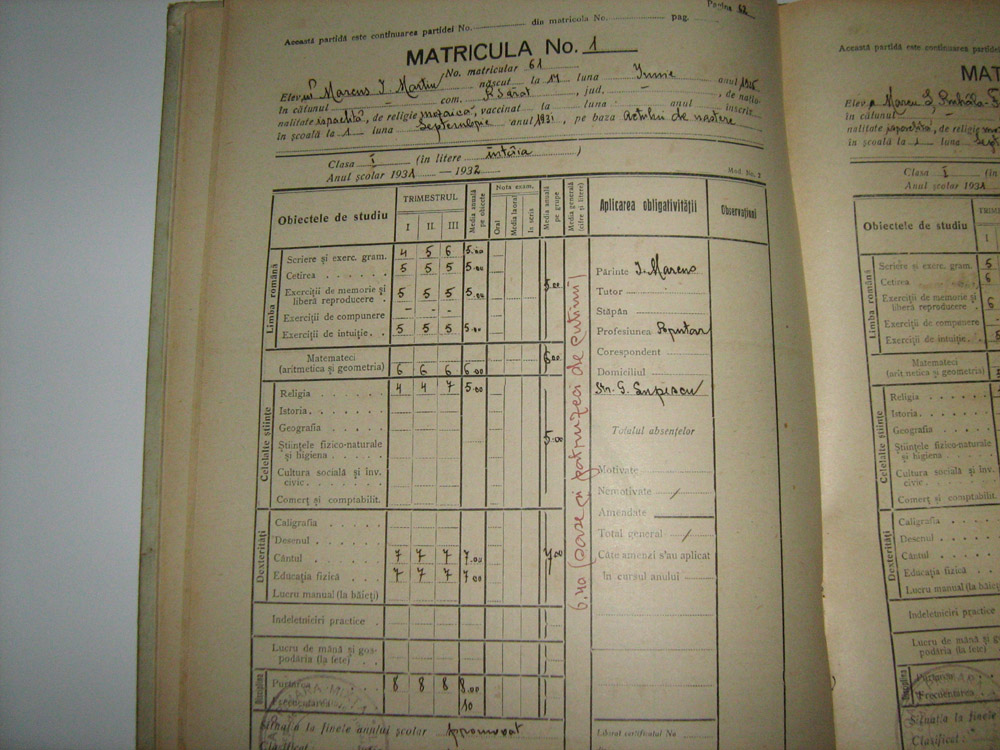 Pagina 62
Această partidă este continuarea partidei No. din matricola No. pag.
MATRICULA No. 1
No. matricular 61
Elev Marcus I. Martin născut la 17 luna Iunie anul 19
în cătunul - com. R. Sărat, jud. - , de națio-
nalitate israelită, de religie mozaică, vaccinat la luna anul inscris
în școală la 1 luna Septembrie anul 1931, pe baza actului de nastere
Clasa I (în litere întâia )
Anul școlar 1931 — 1932
Mod. No. 3
Obiectele de studiu
TRIMESTRUL
I II III
Media anuală pe obiecte
Nota exam.
Oral
Media la oral
In scris
Media anuală pe grupe
Media generală (cifre și litere)
Aplicarea obligativității
Observațiuni
Limba română
Scriere și exerc. gram. 4 5 6 5.00
Cetirea 5 5 5 5.00
Exerciții de memorie și
liberă reproducere 5 5 5 5.00
Exerciții de compunere - - -
Exerciții de intuiție 5 5 5 5.00
5.00
Matemateci
(aritmetica și geometria) 6 6 6 6.00 6.00
Celelalte științe
Religia 4 4 7 5.00
Istoria
Geografia
Științele fizico-naturale
și higiena
Cultura socială și înv.
civic
Comerț și comptabilit.
5.00
Dexterități
Caligrafia
Desenul
Cântul 7 7 7 7.00
Educația fizică 7 7 7 7.00
Lucru manual (la băieți)
7.00
Indeletniciri practice
Lucru de mână și gos-
podăria (la fete)
Disciplina
Purtarea 8 8 8 8.00
Frecuentarea 10
Situația la finele anului școlar Appromovat
6,40 (șase și patruzeci de cutimi)
Părinte I. Marcus
Tutor
Stăpân
Profesiunea
Corespondent
Domiciliul
Str. G.
Totalul absențelor
Motivate
Nemotivate /
Amendate
Total general /
Câte amenzi s'au aplicat
In cursul anului
Liberat certificatul No
Această partidă este continuarea partidei
MAT
Elev Marcu
în cătunul
nalitate israelită, de religie
în școală la 1 luna
Clasa I (în
Anul școlar 1931
Obiectele de studiu
TRIM
I
Limba română
Scriere și exerc. gram. 5
Cetirea 6
Exerciții de memorie și
liberă reproducere 6
Exerciții de compunere
Exerciții de intuiție 5
Matemateci
(aritmetica și geometria)
Celelalte științe
Religia
Istoria
Geografia
Științele fizico-naturale
și higiena
Cultura socială și înv.
civic
Comerț și comptabilit.
Dexterități
Caligrafia
Desenul
Cântul
Educația fizică
Lucru manual (la băieți)
Indeletniciri practice
Lucru de mână și gos-
podăria (la fete)
Disciplina
Purtarea
Frecuentarea
Situația la finele anului
Clasificat